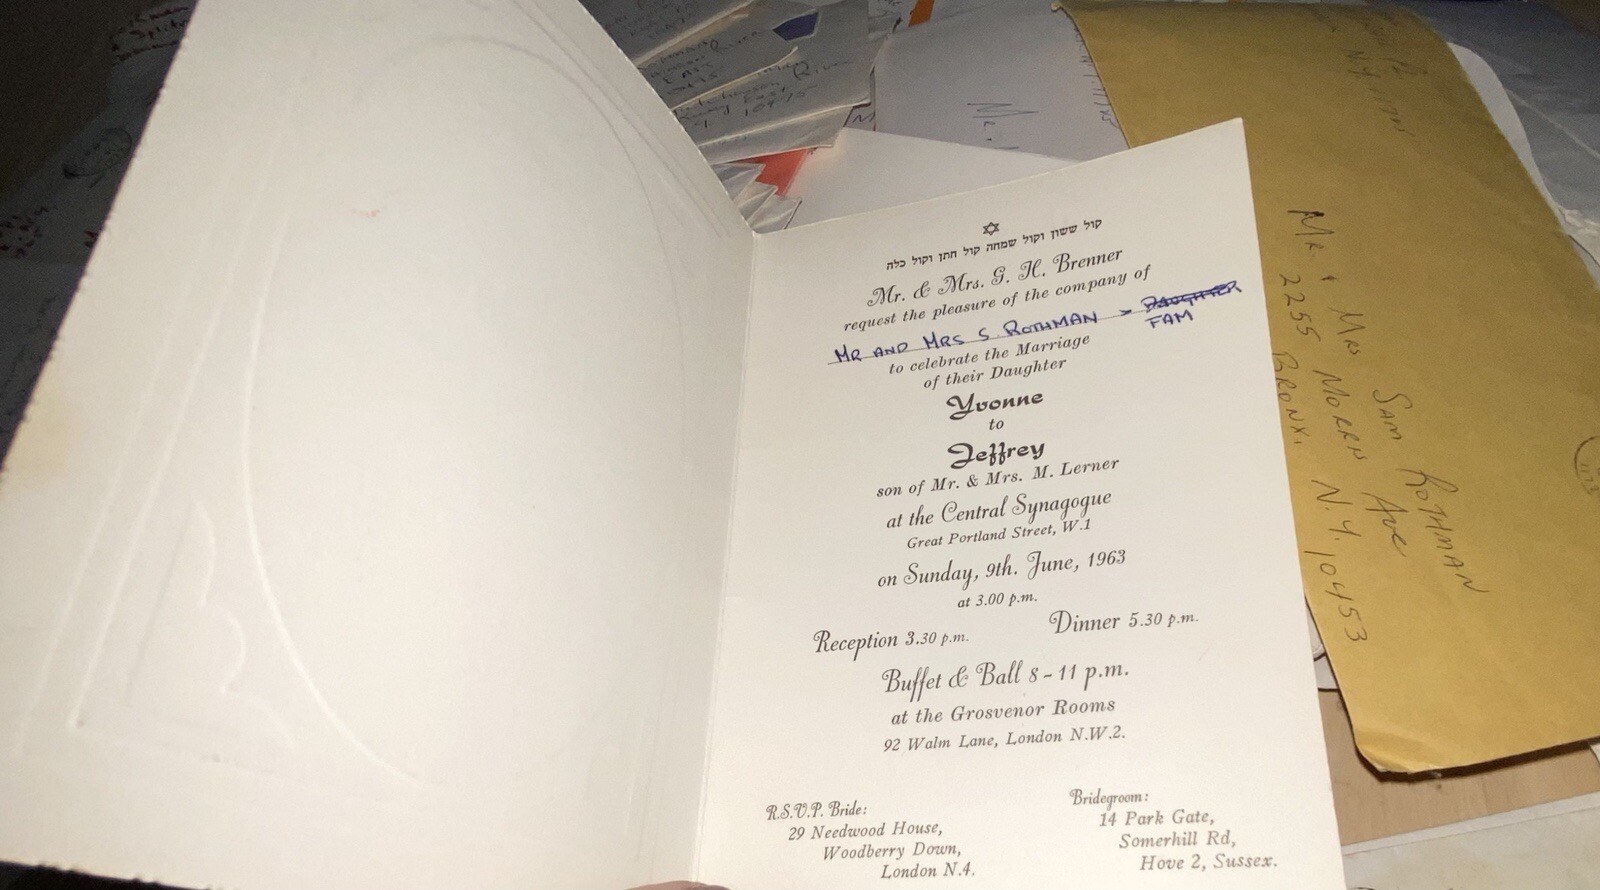 קול ששון וקול שמחה קול חתן וקול כלה
Mr. & Mrs. G. H. Brenner
request the pleasure of the company of
MR AND MRS S. ROTHMAN > DAUGHTER
FAM
to celebrate the Marriage
of their Daughter
Yvonne
to
Jeffrey
son of Mr. & Mrs. M. Lerner
at the Central Synagogue
Great Portland Street, W.1
on Sunday, 9th. June, 1963
at 3.00 p.m.
Reception 3.30 p.m. Dinner 5.30 p.m.
Buffet & Ball 8 - 11 p.m.
at the Grosvenor Rooms
92 Walm Lane, London N.W.2.
R.S.V.P. Bride:
29 Needwood House,
Woodberry Down,
London N.4.
Bridegroom:
14 Park Gate,
Somerhill Rd,
Hove 2, Sussex.
MR & MRS SAM ROTHMAN
2255 MORRIS AVE
BRONX. N.Y. 10453
Mr.
River
10475